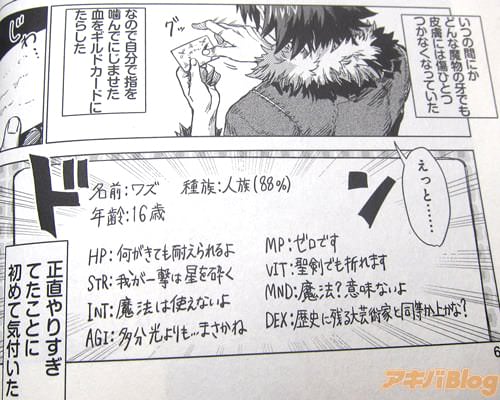 いつの間にか
どんな魔物の牙でも
皮膚には傷ひとつ
つかなくなっていた
グッ
なので自分で指を
噛んでにじませた
血をギルドカードに
たらした
じわ…
えっと……
ドン
名前:ワズ 種族:人族(88%)
年齢:16歳
HP:何がきても耐えられるよ
MP:ゼロです
STR:我が一撃は星を砕く
VIT:聖剣でも折れます
INT:魔法は使えないよ
MND:魔法?意味ないよ
AGI:多分光よりも…まさかね
DEX:歴史に残る大芸術家と同等か上かな?
正直やりすぎ
てたことに
初めて気付いた
6
アキバBlog